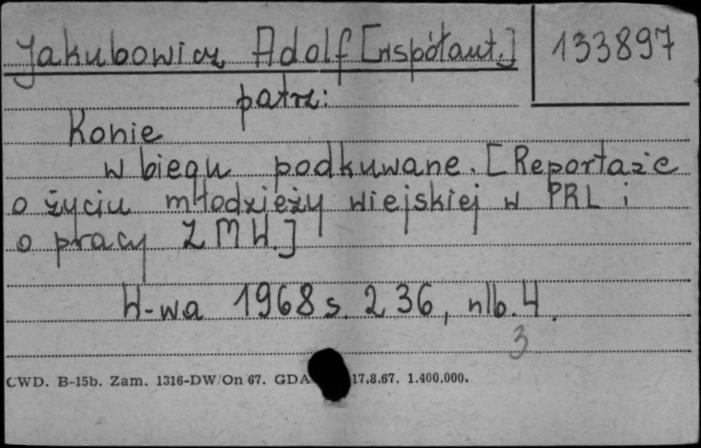 Jakubowicz Adolf [współaut.] 133897
patrz:
Konie
w biegu podkuwane. [Reportaże
o życiu młodzieży wiejskiej w PRL i
o pracy ZMW.]
W-wa 1968 s. 236, nlb. 4.
3
CWD. B-15b. Zam. 1316-DW/On 67. GDA 17.8.67. 1.400.000.